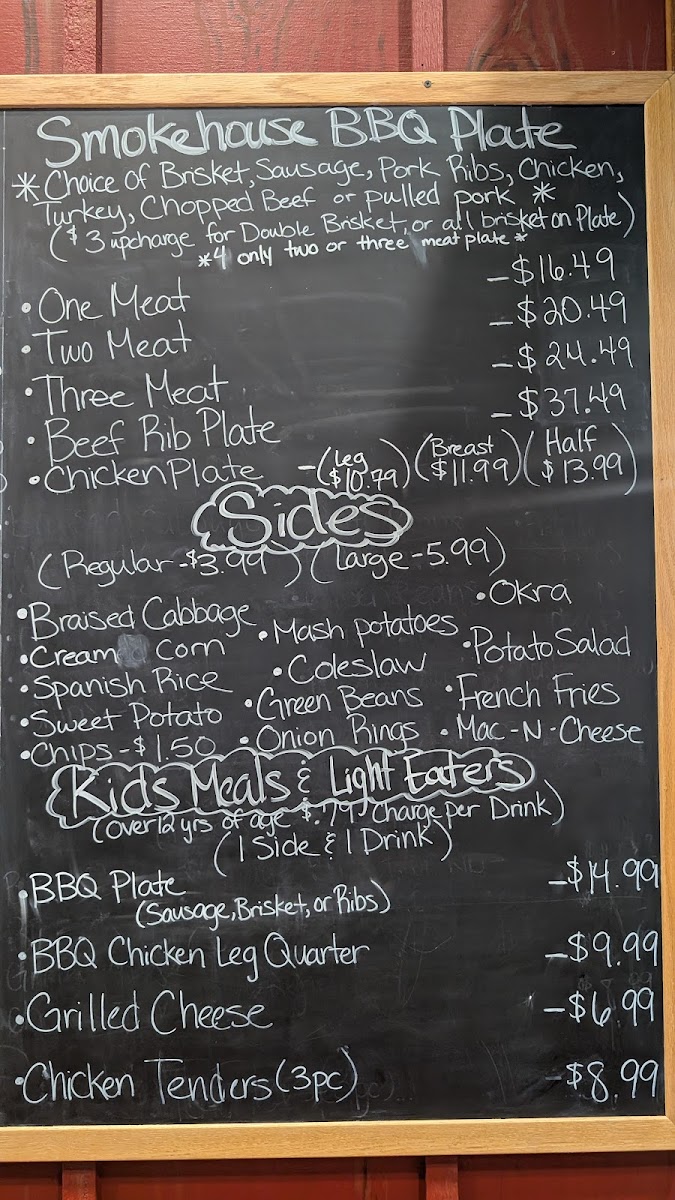 Smokehouse BBQ Plate
*Choice Of Brisket, Sausage, Pork Ribs, Chicken,
Turkey, Chopped Beef or pulled pork *
($3 upcharge for Double Brisket, or all brisket on Plate)
*4 only two or three meat plate*
• One Meat -$16.49
• Two Meat -$20.49
• Three Meat -$24.49
• Beef Rib Plate -$37.49
• Chicken Plate -(Leg $10.79) (Breast $11.99) (Half $13.99)
Sides
(Regular -$3.99) (Large -5.99)
• Okra
• Braised Cabbage • Mash potatoes • Potato Salad
• Cream Corn • Coleslaw
• Spanish Rice • Green Beans • French Fries
• Sweet Potato • Onion Rings • Mac-N-Cheese
• Chips -$1.50
Kids Meals & Light Eaters
(Over 12 yrs of age $.79 Charge per Drink)
(1 Side & 1 Drink)
• BBQ Plate -$14.99
(Sausage, Brisket, or Ribs)
• BBQ Chicken Leg Quarter -$9.99
• Grilled Cheese -$6.99
• Chicken Tenders (3pc) -$8.99